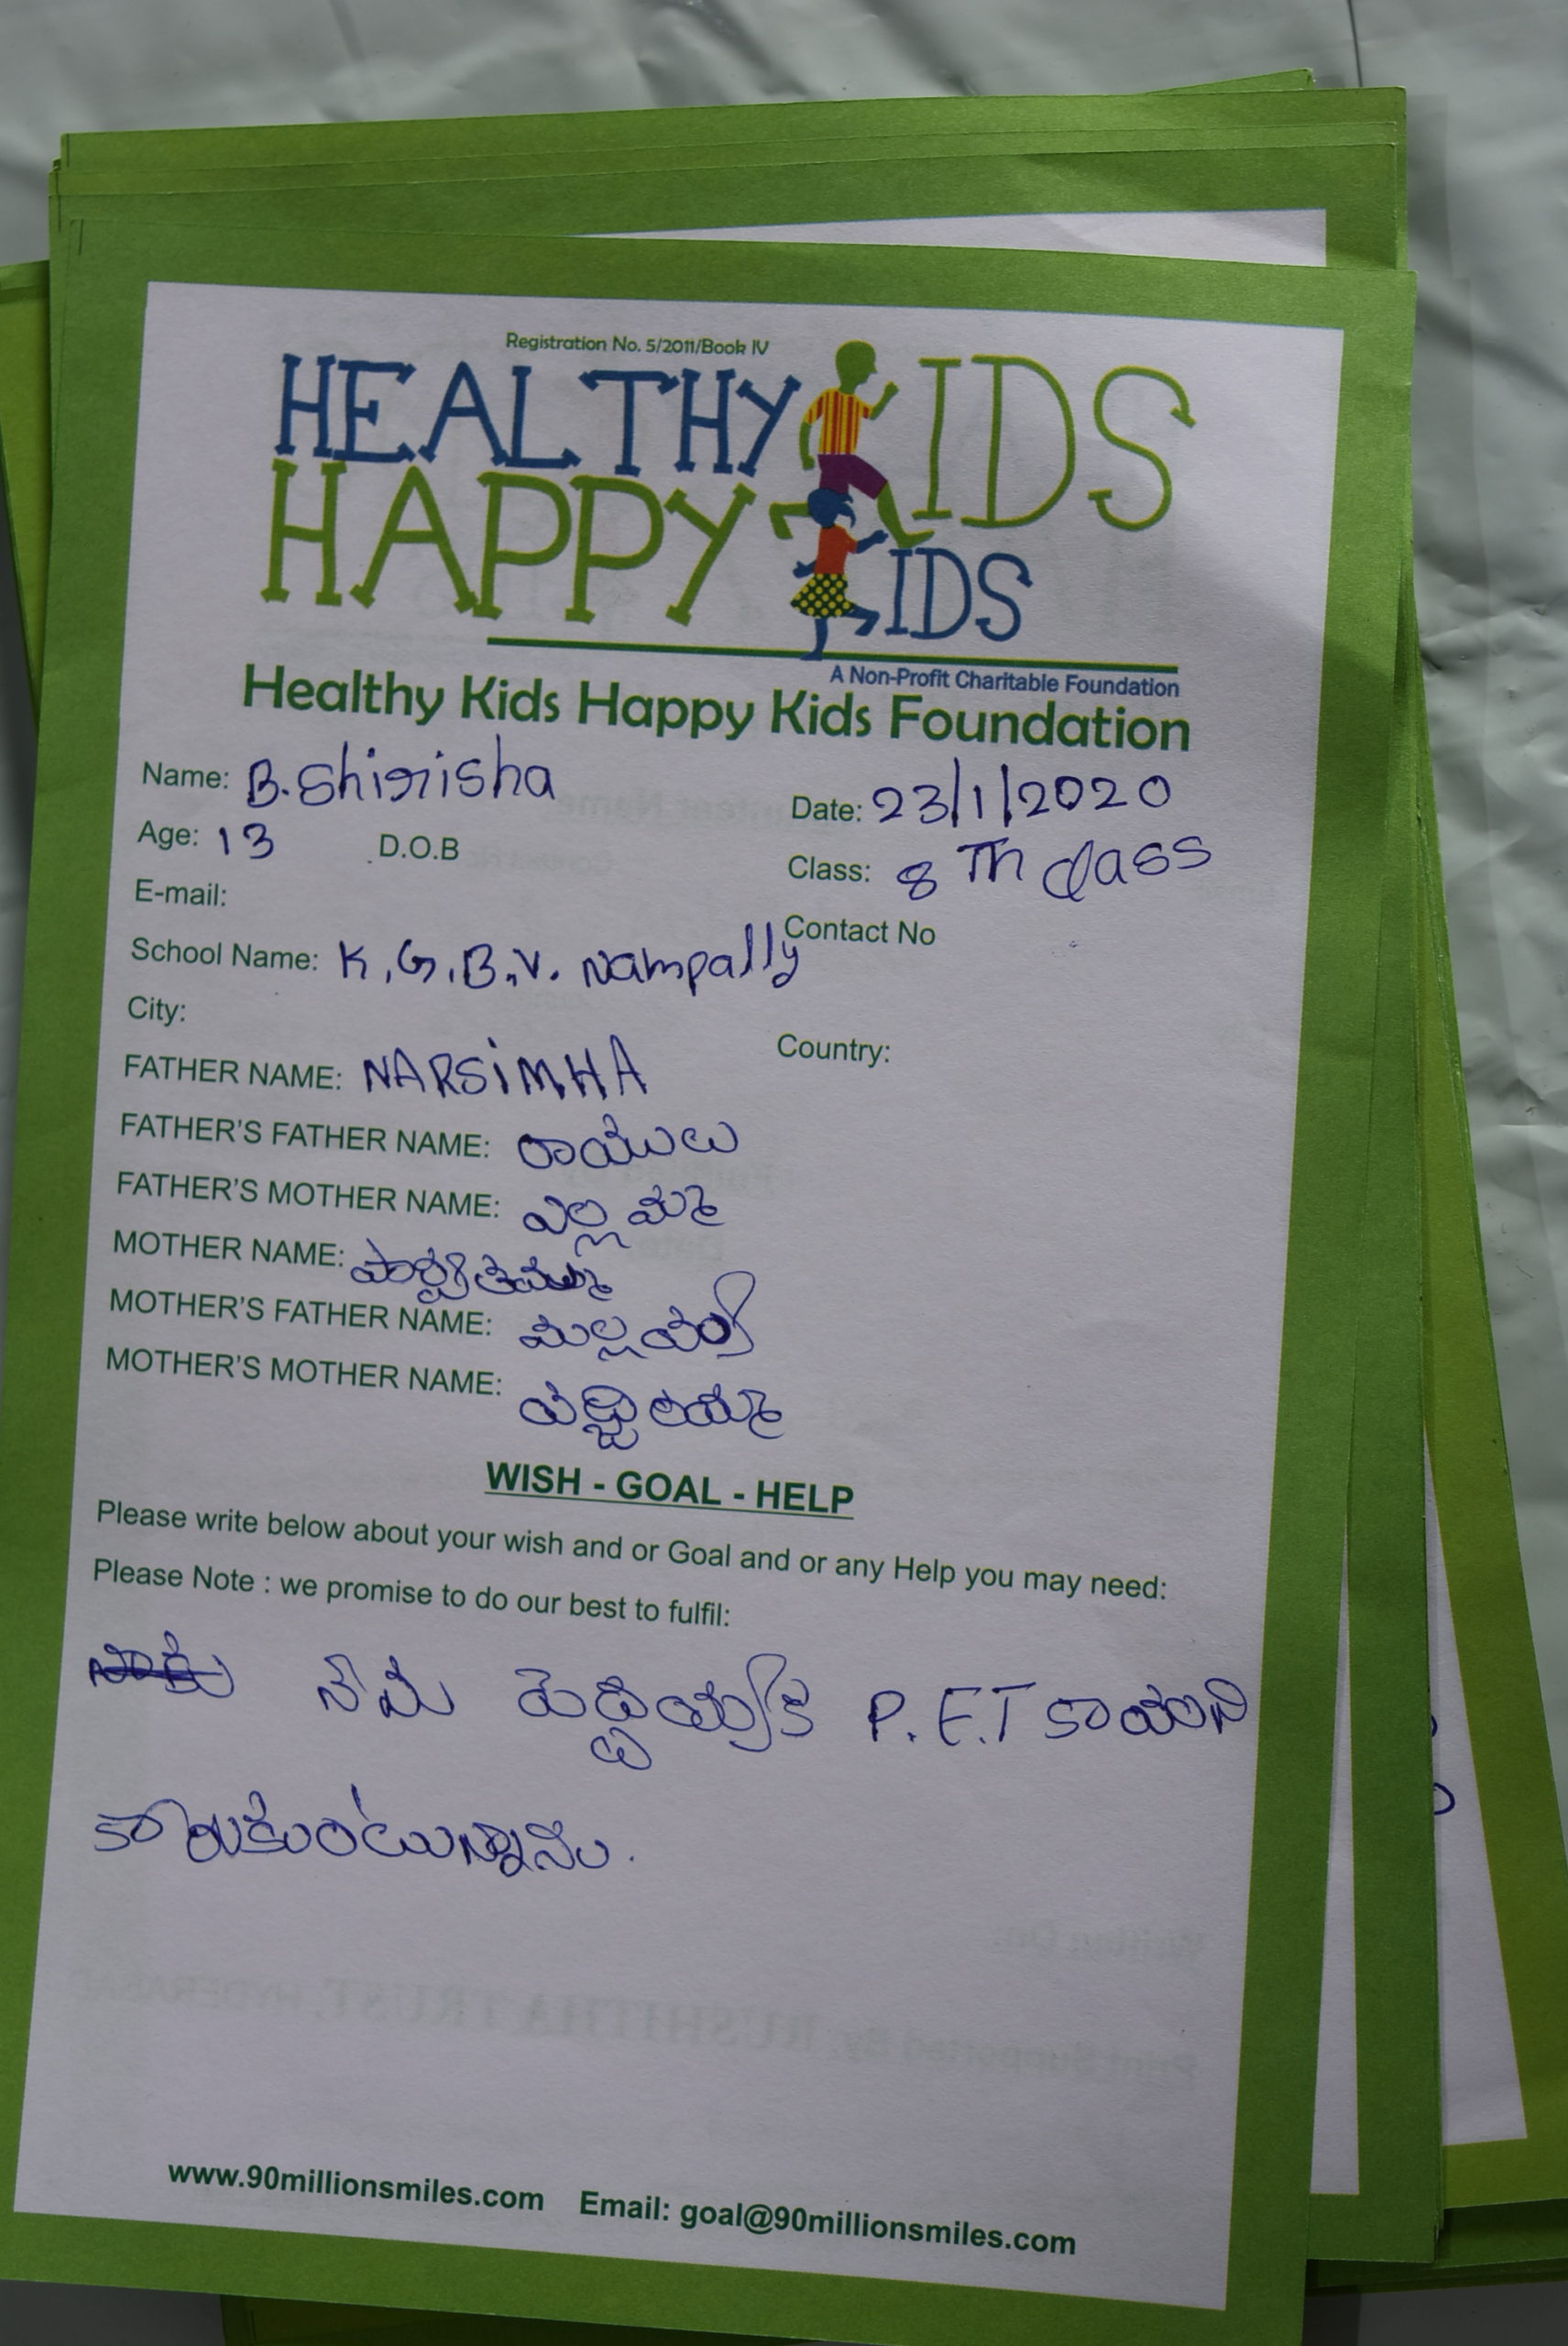 Registration No. 5/2011/Book IV
HEALTHY KIDS
HAPPY KIDS
A Non-Profit Charitable Foundation
Healthy Kids Happy Kids Foundation
Name: B. Shirisha
Date: 23/1/2020
Age: 13 D.O.B
Class: 8 Th class
E-mail:
Contact No
School Name: K.G.B.V. Nampally
City:
Country:
FATHER NAME: NARSiMHA
FATHER'S FATHER NAME: రాములు
FATHER'S MOTHER NAME: ఎల్లమ్మ
MOTHER NAME: పార్వతమ్మ
MOTHER'S FATHER NAME: మల్లయ్య
MOTHER'S MOTHER NAME:
WISH - GOAL - HELP
Please write below about your wish and or Goal and or any Help you may need:
Please Note : we promise to do our best to fulfil:
నాకు నేను పెద్దయ్యాక P.E.T కావాలని
కోరుకుంటున్నాను.
www.90millionsmiles.com Email: goal@90millionsmiles.com